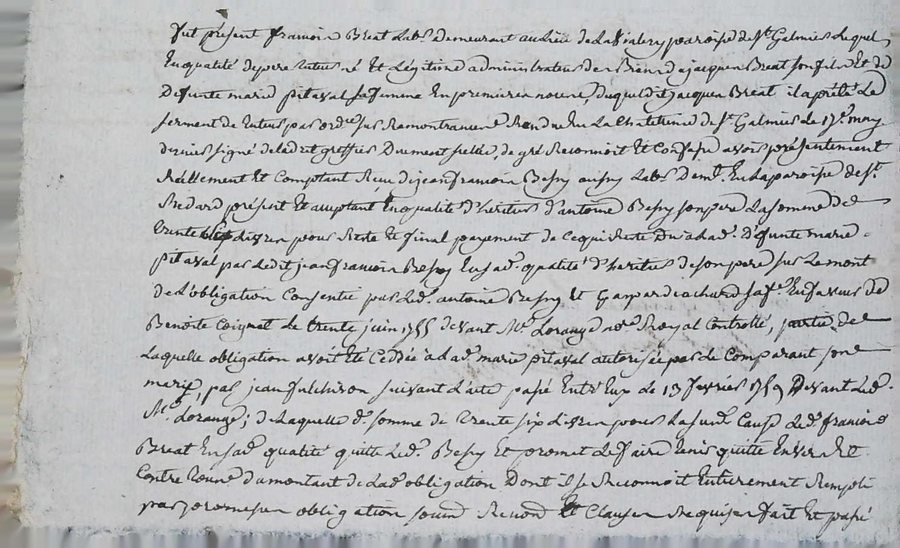 fut présent francois Breat Labr. demeurant au Lieu de La Vialery paroisse de St. Galmier Lequel
En qualité de pere tuteur né Et Légitime administrateur des Biens de jacques Breat son fils Et de
Defunte marie pitaval sa femme En premieres noces, duquel dit jacques Breat il a prêté Le
serment de tuteur par ordce. sur Remontrance Rendue En La Chatelnie de St. Galmier Le 17e. may
dernier signé de Ladret greffier Duement scellée, de gré Reconnoit Et Confesse avoir présentement
Réellement Et Comptant Reçu de jean francois Bessy aussy Labr. demt. En La paroisse de St.
Medard présent Et acceptant En qualité d'heritier d'antoine Bessy son pere La somme de
trente six Livres pour Reste Et final payement de ce qui Reste Du a Lad. defunte marie
pitaval par Ledit jean francois Bessy En sad. qualité d'heritier de son pere sur Le mont
de L'obligation Consentie par Led. antoine Bessy Et Gaspard sa fe. En faveur de
Benoite Coignet Le trente juin 1755 devant Me. Lorange nore. Royal Controllé, partie de
Laquelle obligation avoit été Cédée a Lad. marie pitaval autorisée par Le Comparant son
mary, par jean fulchiron suivant L'acte passé Entr'Eux Le 13 fevrier 1759 Devant Led.
Me. Lorange; de Laquelle d. somme de trente six Livres pour La susd. Cause Led. francois
Breat En sad. qualité quitte Led. Bessy Et promet Le faire tenir quitte Envers Et
Contre tous du montant de Lad. obligation Dont il se Reconnoit Entierement Rempli
par promesses obligation soumd. Renond. Et Clauses Requises fait Et passé